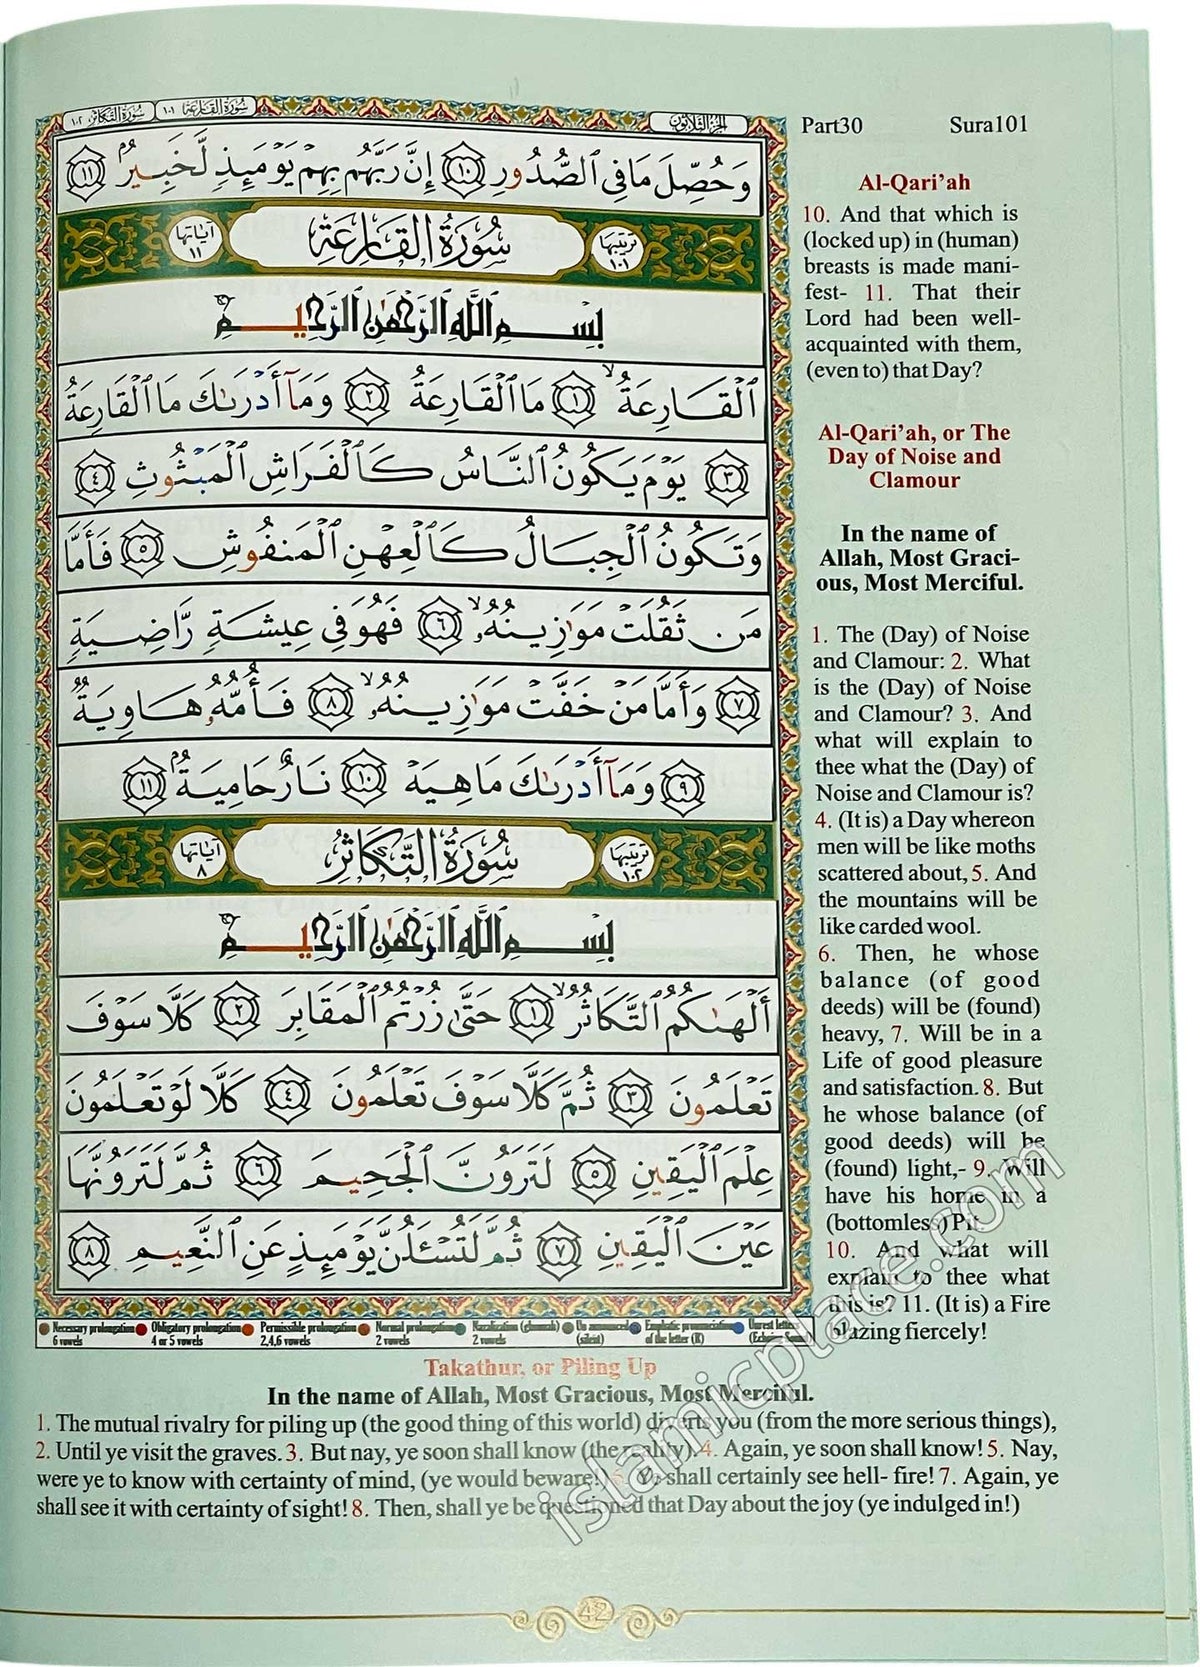 سورة التكاثر ١٠٢ سورة القارعة ١٠١
الجزء الثلاثون
Part30 Sura101
وَحُصِّلَ مَا فِي ٱلصُّدُورِ ١٠ إِنَّ رَبَّهُم بِهِمْ يَوْمَئِذٍ لَّخَبِيرٌۢ ١١
ترتيبها ١٠١ سُورَةُ القَارِعَة آياتها ١١
بِسْمِ ٱللَّهِ ٱلرَّحْمَٰنِ ٱلرَّحِيمِ
ٱلْقَارِعَةُ ١ مَا ٱلْقَارِعَةُ ٢ وَمَآ أَدْرَىٰكَ مَا ٱلْقَارِعَةُ
٣ يَوْمَ يَكُونُ ٱلنَّاسُ كَٱلْفَرَاشِ ٱلْمَبْثُوثِ ٤
وَتَكُونُ ٱلْجِبَالُ كَٱلْعِهْنِ ٱلْمَنفُوشِ ٥ فَأَمَّا
مَن ثَقُلَتْ مَوَٰزِينُهُۥ ٦ فَهُوَ فِي عِيشَةٍ رَّاضِيَةٍ
٧ وَأَمَّا مَنْ خَفَّتْ مَوَٰزِينُهُۥ ٨ فَأُمُّهُۥ هَاوِيَةٌ
٩ وَمَآ أَدْرَىٰكَ مَا هِيَهْ ١٠ نَارٌ حَامِيَةٌۢ ١١
ترتيبها ١٠٢ سُورَةُ التَّكَاثُر آياتها ٨
بِسْمِ ٱللَّهِ ٱلرَّحْمَٰنِ ٱلرَّحِيمِ
أَلْهَىٰكُمُ ٱلتَّكَاثُرُ ١ حَتَّىٰ زُرْتُمُ ٱلْمَقَابِرَ ٢ كَلَّا سَوْفَ
تَعْلَمُونَ ٣ ثُمَّ كَلَّا سَوْفَ تَعْلَمُونَ ٤ كَلَّا لَوْ تَعْلَمُونَ
عِلْمَ ٱلْيَقِينِ ٥ لَتَرَوُنَّ ٱلْجَحِيمَ ٦ ثُمَّ لَتَرَوُنَّهَا
عَيْنَ ٱلْيَقِينِ ٧ ثُمَّ لَتُسْـَٔلُنَّ يَوْمَئِذٍ عَنِ ٱلنَّعِيمِ ٨
Al-Qari'ah
10. And that which is
(locked up) in (human)
breasts is made mani-
fest- 11. That their
Lord had been well-
acquainted with them,
(even to) that Day?
Al-Qari'ah, or The
Day of Noise and
Clamour
In the name of
Allah, Most Graci-
ous, Most Merciful.
1. The (Day) of Noise
and Clamour: 2. What
is the (Day) of Noise
and Clamour? 3. And
what will explain to
thee what the (Day) of
Noise and Clamour is?
4. (It is) a Day whereon
men will be like moths
scattered about, 5. And
the mountains will be
like carded wool.
6. Then, he whose
balance (of good
deeds) will be (found)
heavy, 7. Will be in a
Life of good pleasure
and satisfaction. 8. But
he whose balance (of
good deeds) will be
(found) light,- 9. Will
have his home in a
(bottomless) Pit.
10. And what will
explain to thee what
this is? 11. (It is) a Fire
blazing fiercely!
Necessary prolongation Obligatory prolongation Permissible prolongation Normal prolongation Nazalization (ghunnah) Un announced Emphatic pronunciation Unrest letters
6 vowels 4 or 5 vowels 2,4,6 vowels 2 vowels 2 vowels (silent) of the letter (R) (Echoing Sound)
Takathur, or Piling Up
In the name of Allah, Most Gracious, Most Merciful.
1. The mutual rivalry for piling up (the good thing of this world) diverts you (from the more serious things),
2. Until ye visit the graves. 3. But nay, ye soon shall know (the reality). 4. Again, ye soon shall know! 5. Nay,
were ye to know with certainty of mind, (ye would beware!) 6. Ye shall certainly see hell- fire! 7. Again, ye
shall see it with certainty of sight! 8. Then, shall ye be questioned that Day about the joy (ye indulged in!)
islamicplace.com
42